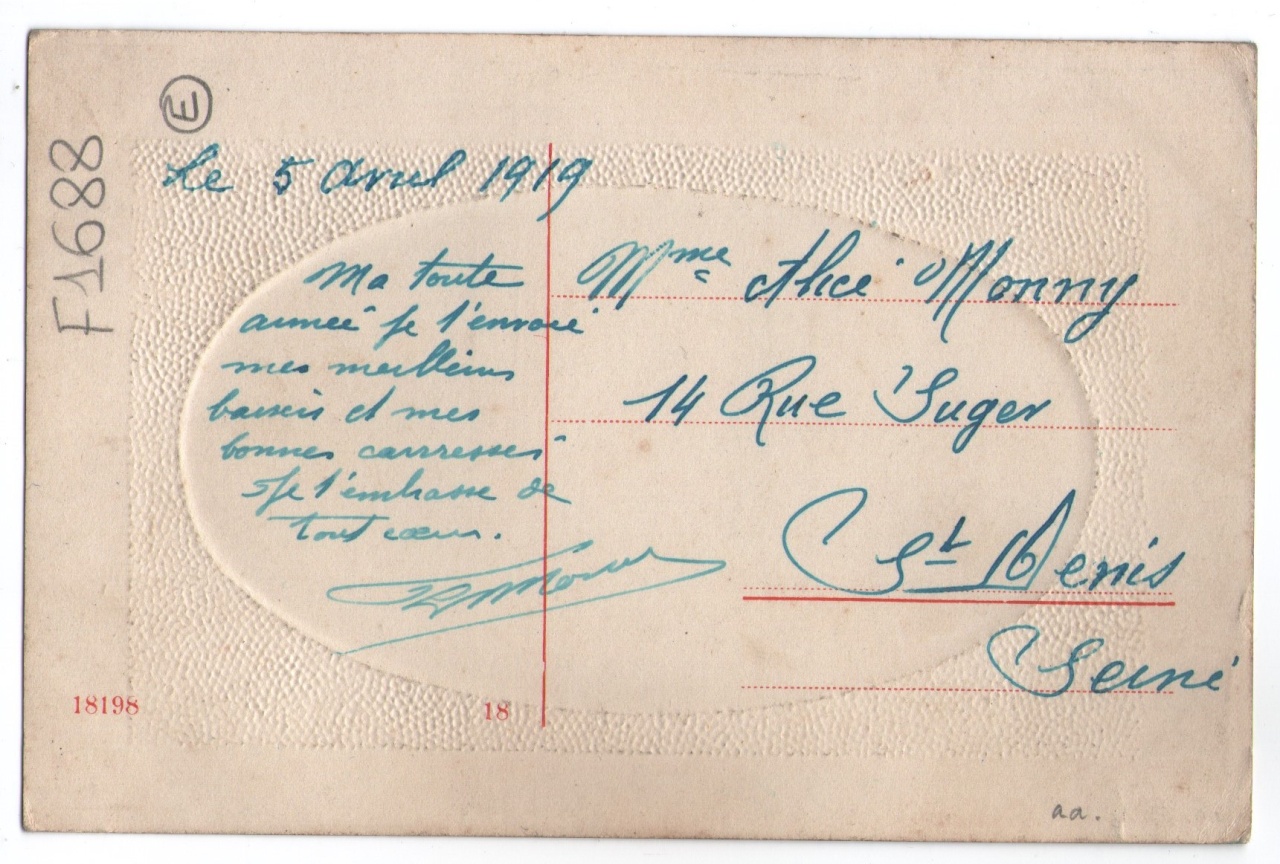 E
F1688
Le 5 Avril 1919
Ma toute
aimée je t'envoie
mes meilleurs
baisers et mes
bonnes carresses
Je t'embrasse de
tout cœur.
Mme Alice Monny
14 Rue Suger
St Denis
Seine
18198
18
aa.